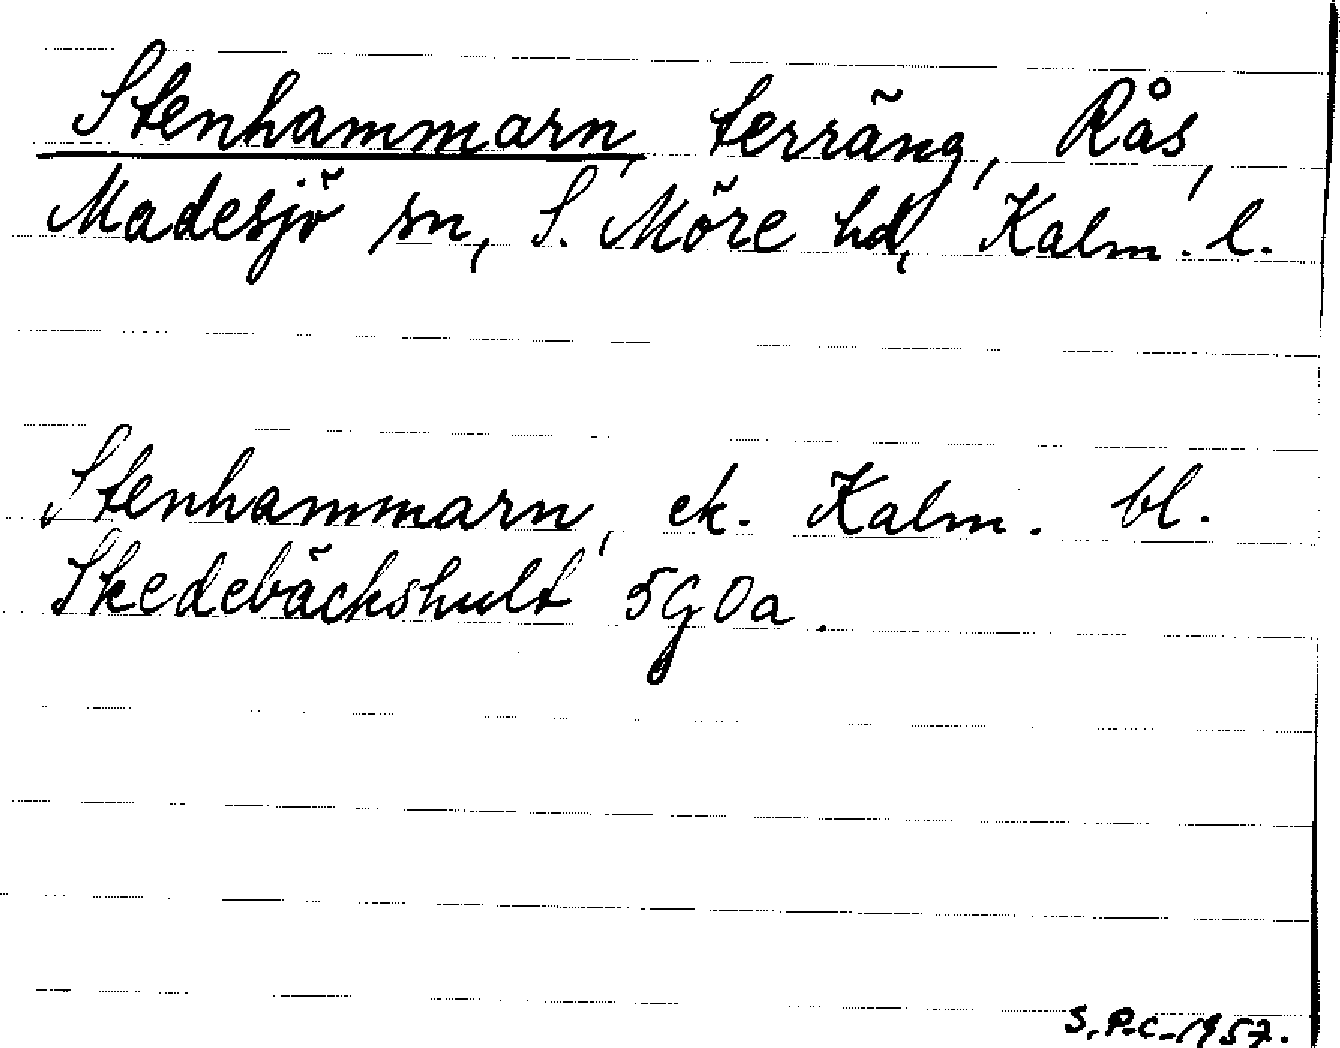 Stenhammarn, terräng, Rås,
Madesjö sn, S. Möre hd, Kalm. l.
Stenhammarn, ek. Kalm. bl.
Skedebäckshult 5G0a.
S.P.C. 1957.